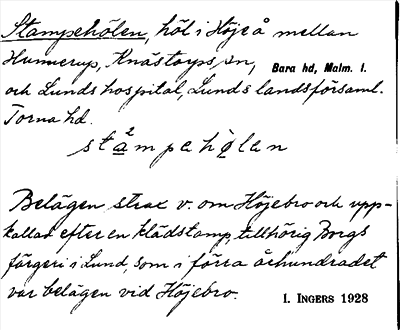 Stampehölen, höl i Höje å mellan
Hunnerup, Knästorps sn, Bara hd, Malm. l.
och Lunds hospital, Lunds landsförsaml.
Torna hd.
stampahòlan
Belägen strax v. om Höjebro och upp-
kallad efter en klädstamp, tillhörig Borgs
färgeri i Lund, som i förra århundradet
var belägen vid Höjebro.
I. INGERS 1928